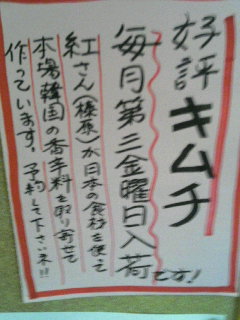 好評キムチ
毎月第三金曜日入荷です！
紅さん(榛原)が日本の食材を使って
本場韓国の香辛料を取り寄せて
作っています。予約して下さいネ!!!